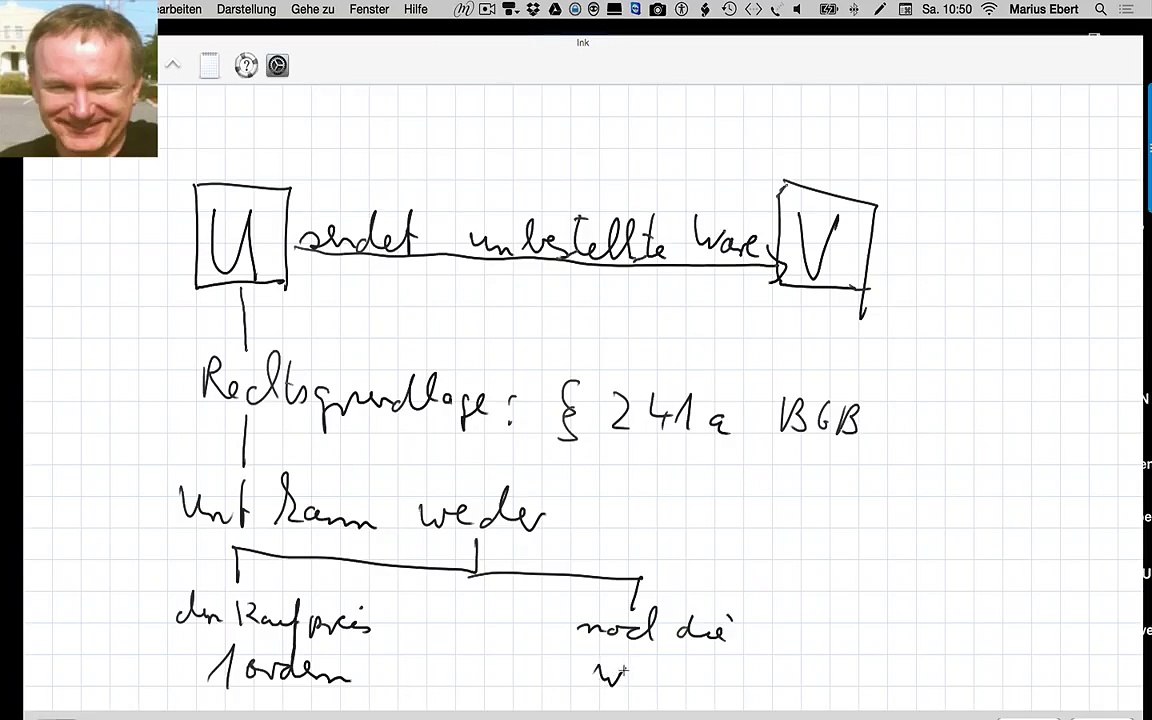 arbeiten Darstellung Gehe zu Fenster Hilfe Sa. 10:50 Marius Ebert
Ink
U sendet unbestellte Ware V
Rechtsgrundlage: § 241a BGB
Unt kann weder
den Kaufpreis noch die
fordern W